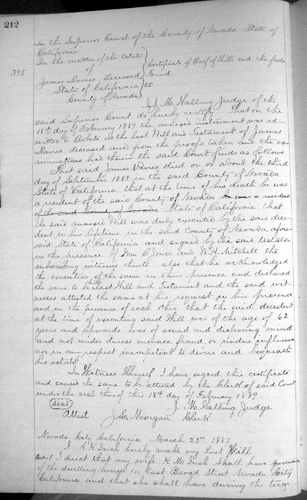 212
In the Superior Court of the County of Nevada State of
California
In the matter of the Estate
of
Certificate of Proof of Will and the facts
found
James Davis Deceased
395
State of California
County of Nevada ss
I J. M. Walling Judge of the
said Superior Court do hereby certify That on the
18th day of February 1889 the annexed instrument was ad-
mitted to Probate as the last Will and Testament of James
Davis deceased and from the proofs taken and the ex-
aminations had therein the said Court finds as follows
That said James Davis died on or about the third
day of September 1888 in the said County of Nevada
State of California that at the time of his death he was
a resident of the said County of Nevada
State of California that
the said annexed Will was duly executed by the said dece-
dent in his lifetime in the said County of Nevada afore-
said State of California and signed by the said testator
in the presence of Jones and W. H. Mitchell the
subscribing witnesses thereto also that he acknowledged
the execution of the same in their presence and declared
the same to be his last Will and Testament and the said wit-
nesses attested the same at his request in his presence
and in the presence of each other that the said decedent
at the time of executing said Will was of the age of 62
years and upwards was of sound and disposing mind
and not under duress menace fraud or undue influence
nor in any respect incompetent to devise and bequeath
his estate
In Witness Whereof I have signed this certificate
and caused the same to be attested by the Clerk of said Court
under the seal thereof this 18th day of February 1889
(Seal) J. M. Walling Judge
Attest J. L. Morgan Clerk
Nevada City California March 23rd 1887
I hereby make my last Will
I direct that my wife shall have
of the dwelling house on East Broad Street Nevada City
California and that she shall during the term